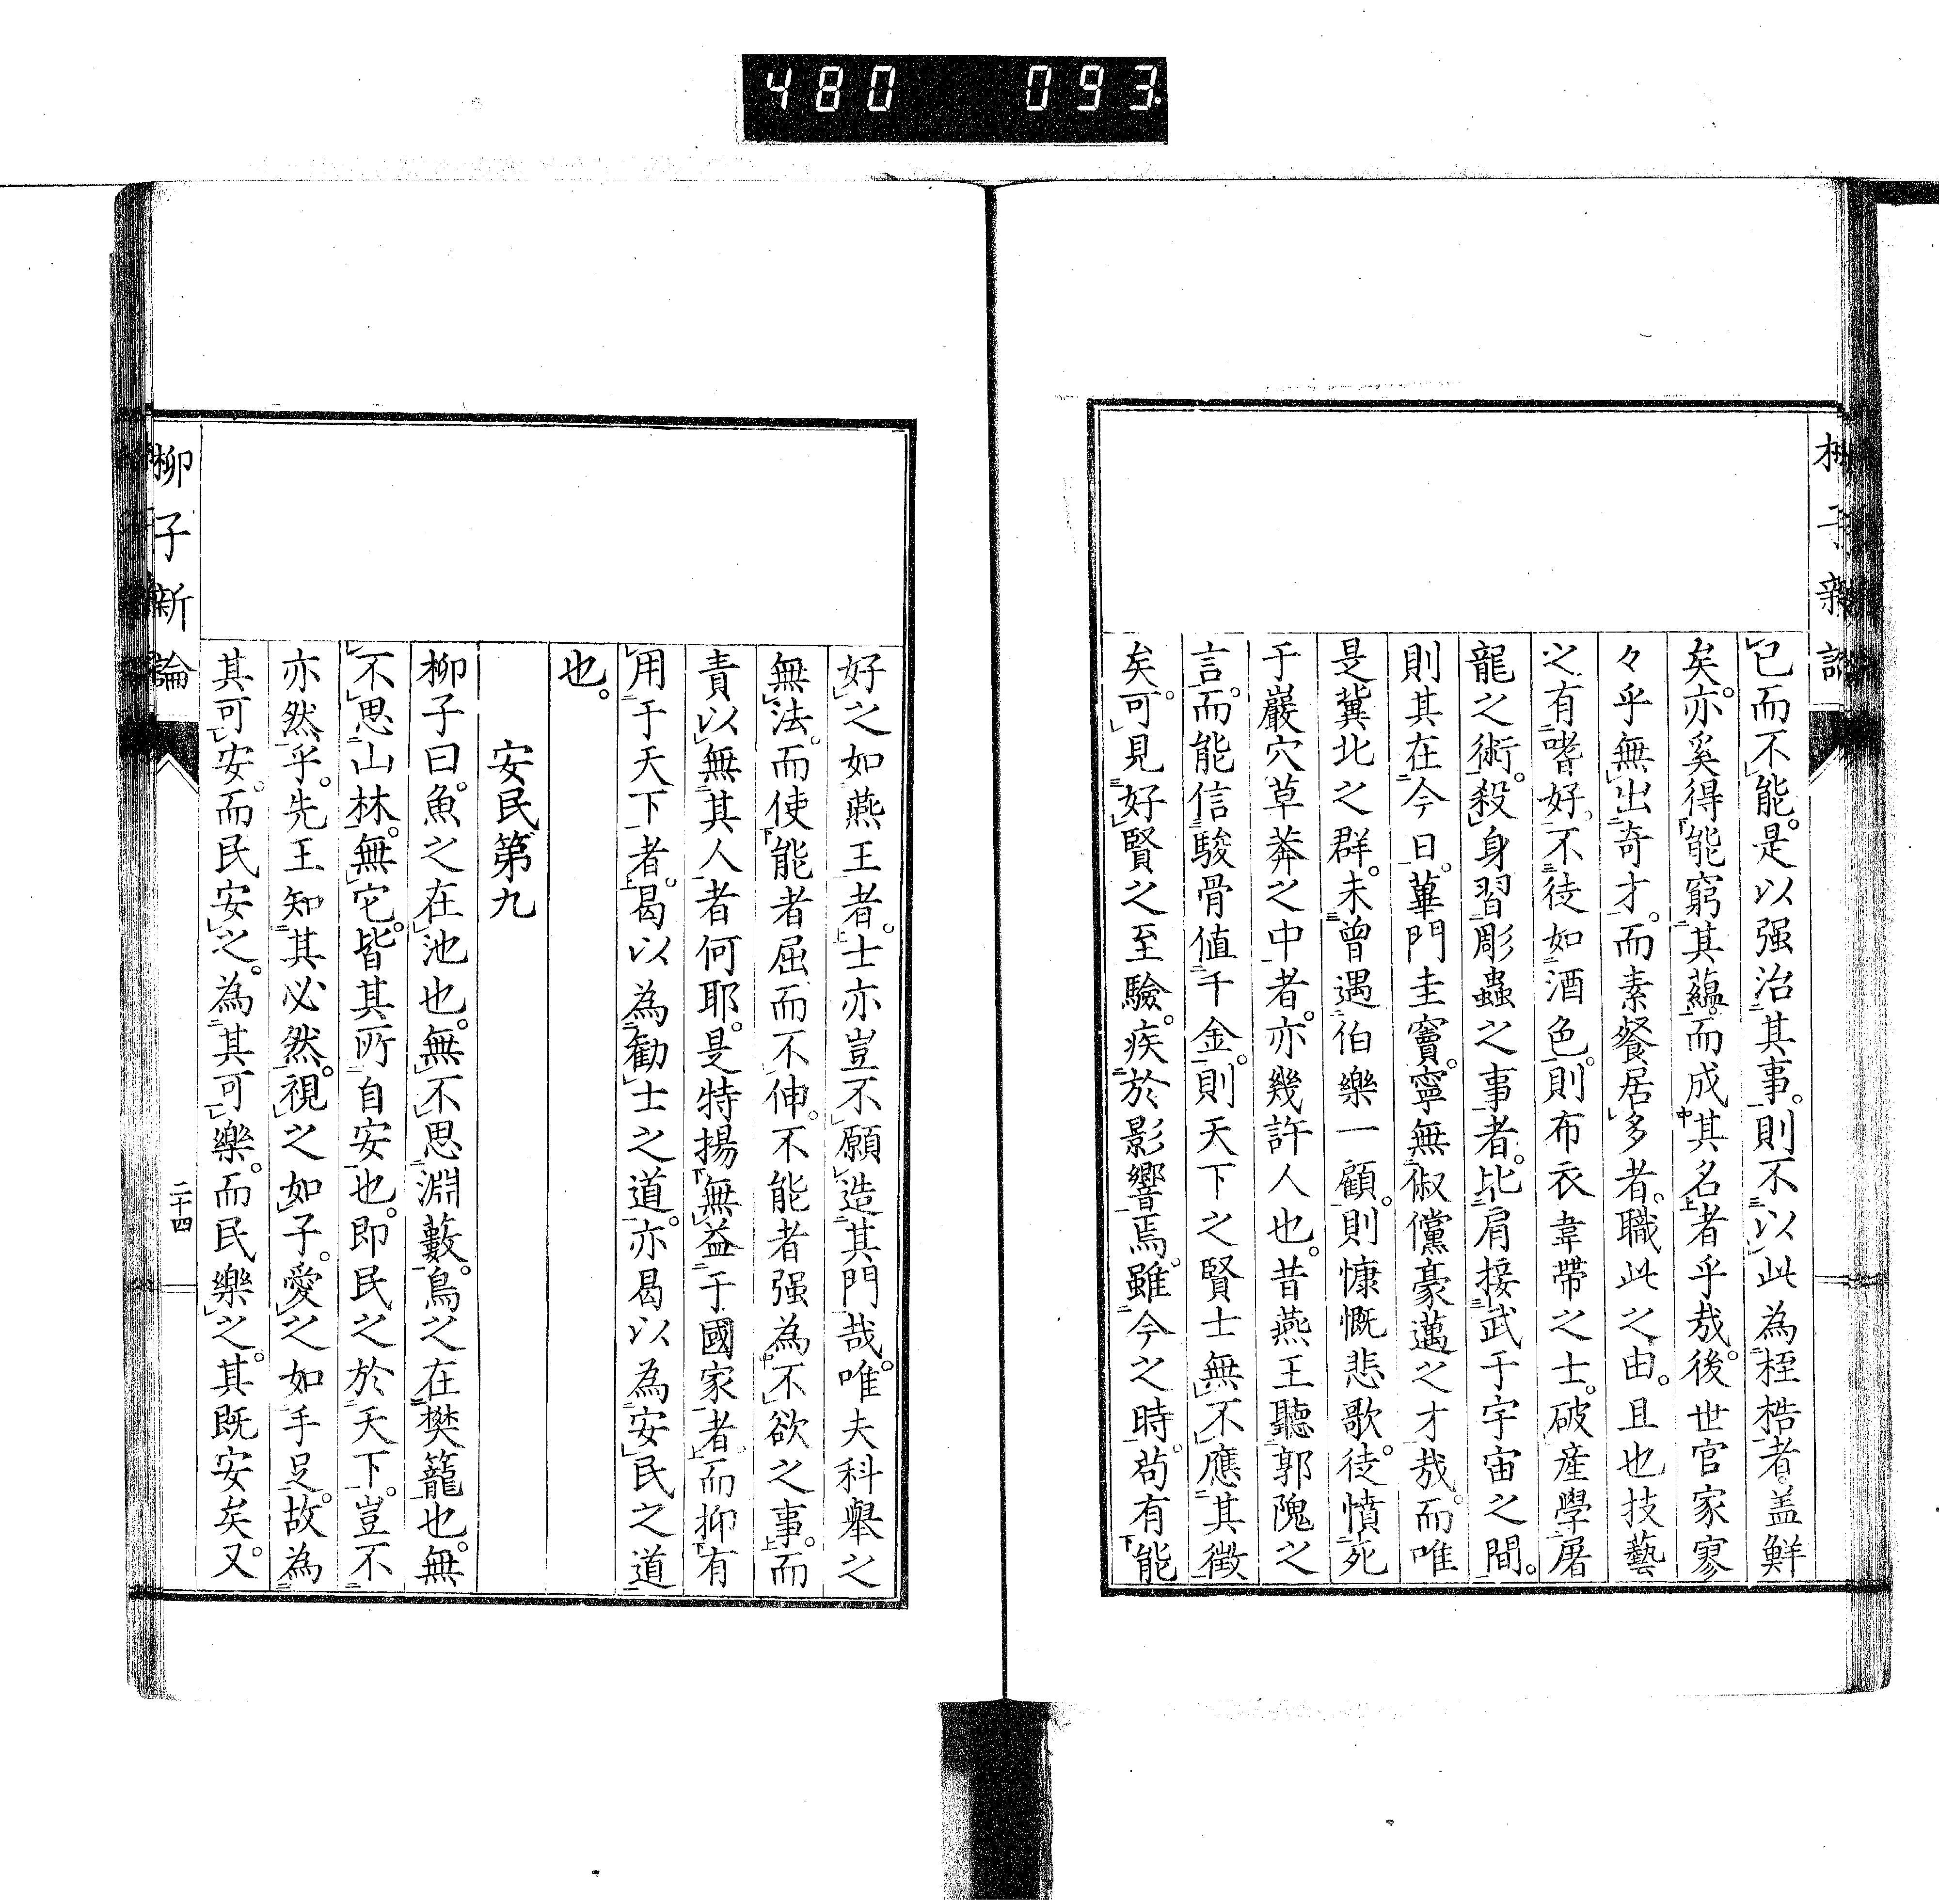 480 093
柳子新論
已而不能。是以强治其事。則不以此為桎梏者。盖鮮
矣。亦奚得能窮其蘊。而成其名者乎哉。後世官家寥
々乎無出奇才。而素餐居多者。職此之由。且也技藝
之有嗜好。不徒如酒色。則布衣韋帶之士。破產學屠
龍之術。殺身習彫蟲之事者。比肩接武于宇宙之間。
則其在今日。蓽門圭竇。寧無俶儻豪邁之才哉。而唯
是冀北之群。未曾遇伯樂一顧。則慷慨悲歌。徒憤死
于巖穴草莽之中者。亦幾許人也。昔燕王聽郭隗之
言。而能信駿骨値千金。則天下之賢士無不應其徵
矣。可見好賢之至驗。疾於影響焉。雖今之時。苟有能
好之如燕王者。士亦豈不願造其門哉。唯夫科舉之
無法。而使能者屈而不伸。不能者强為不欲之事。而
責以無其人者何耶。是特揚無益于國家者。而抑有
用于天下者。曷以為勸士之道。亦曷以為安民之道
也。
安民第九
柳子曰。魚之在池也。無不思淵藪。鳥之在樊籠也。無
不思山林。無它。皆其所自安也。即民之於天下。豈不
亦然乎。先王知其必然。視之如子。愛之如手足。故為
其可安。而民安之。為其可樂。而民樂之。其既安矣。又
柳子新論
二十四